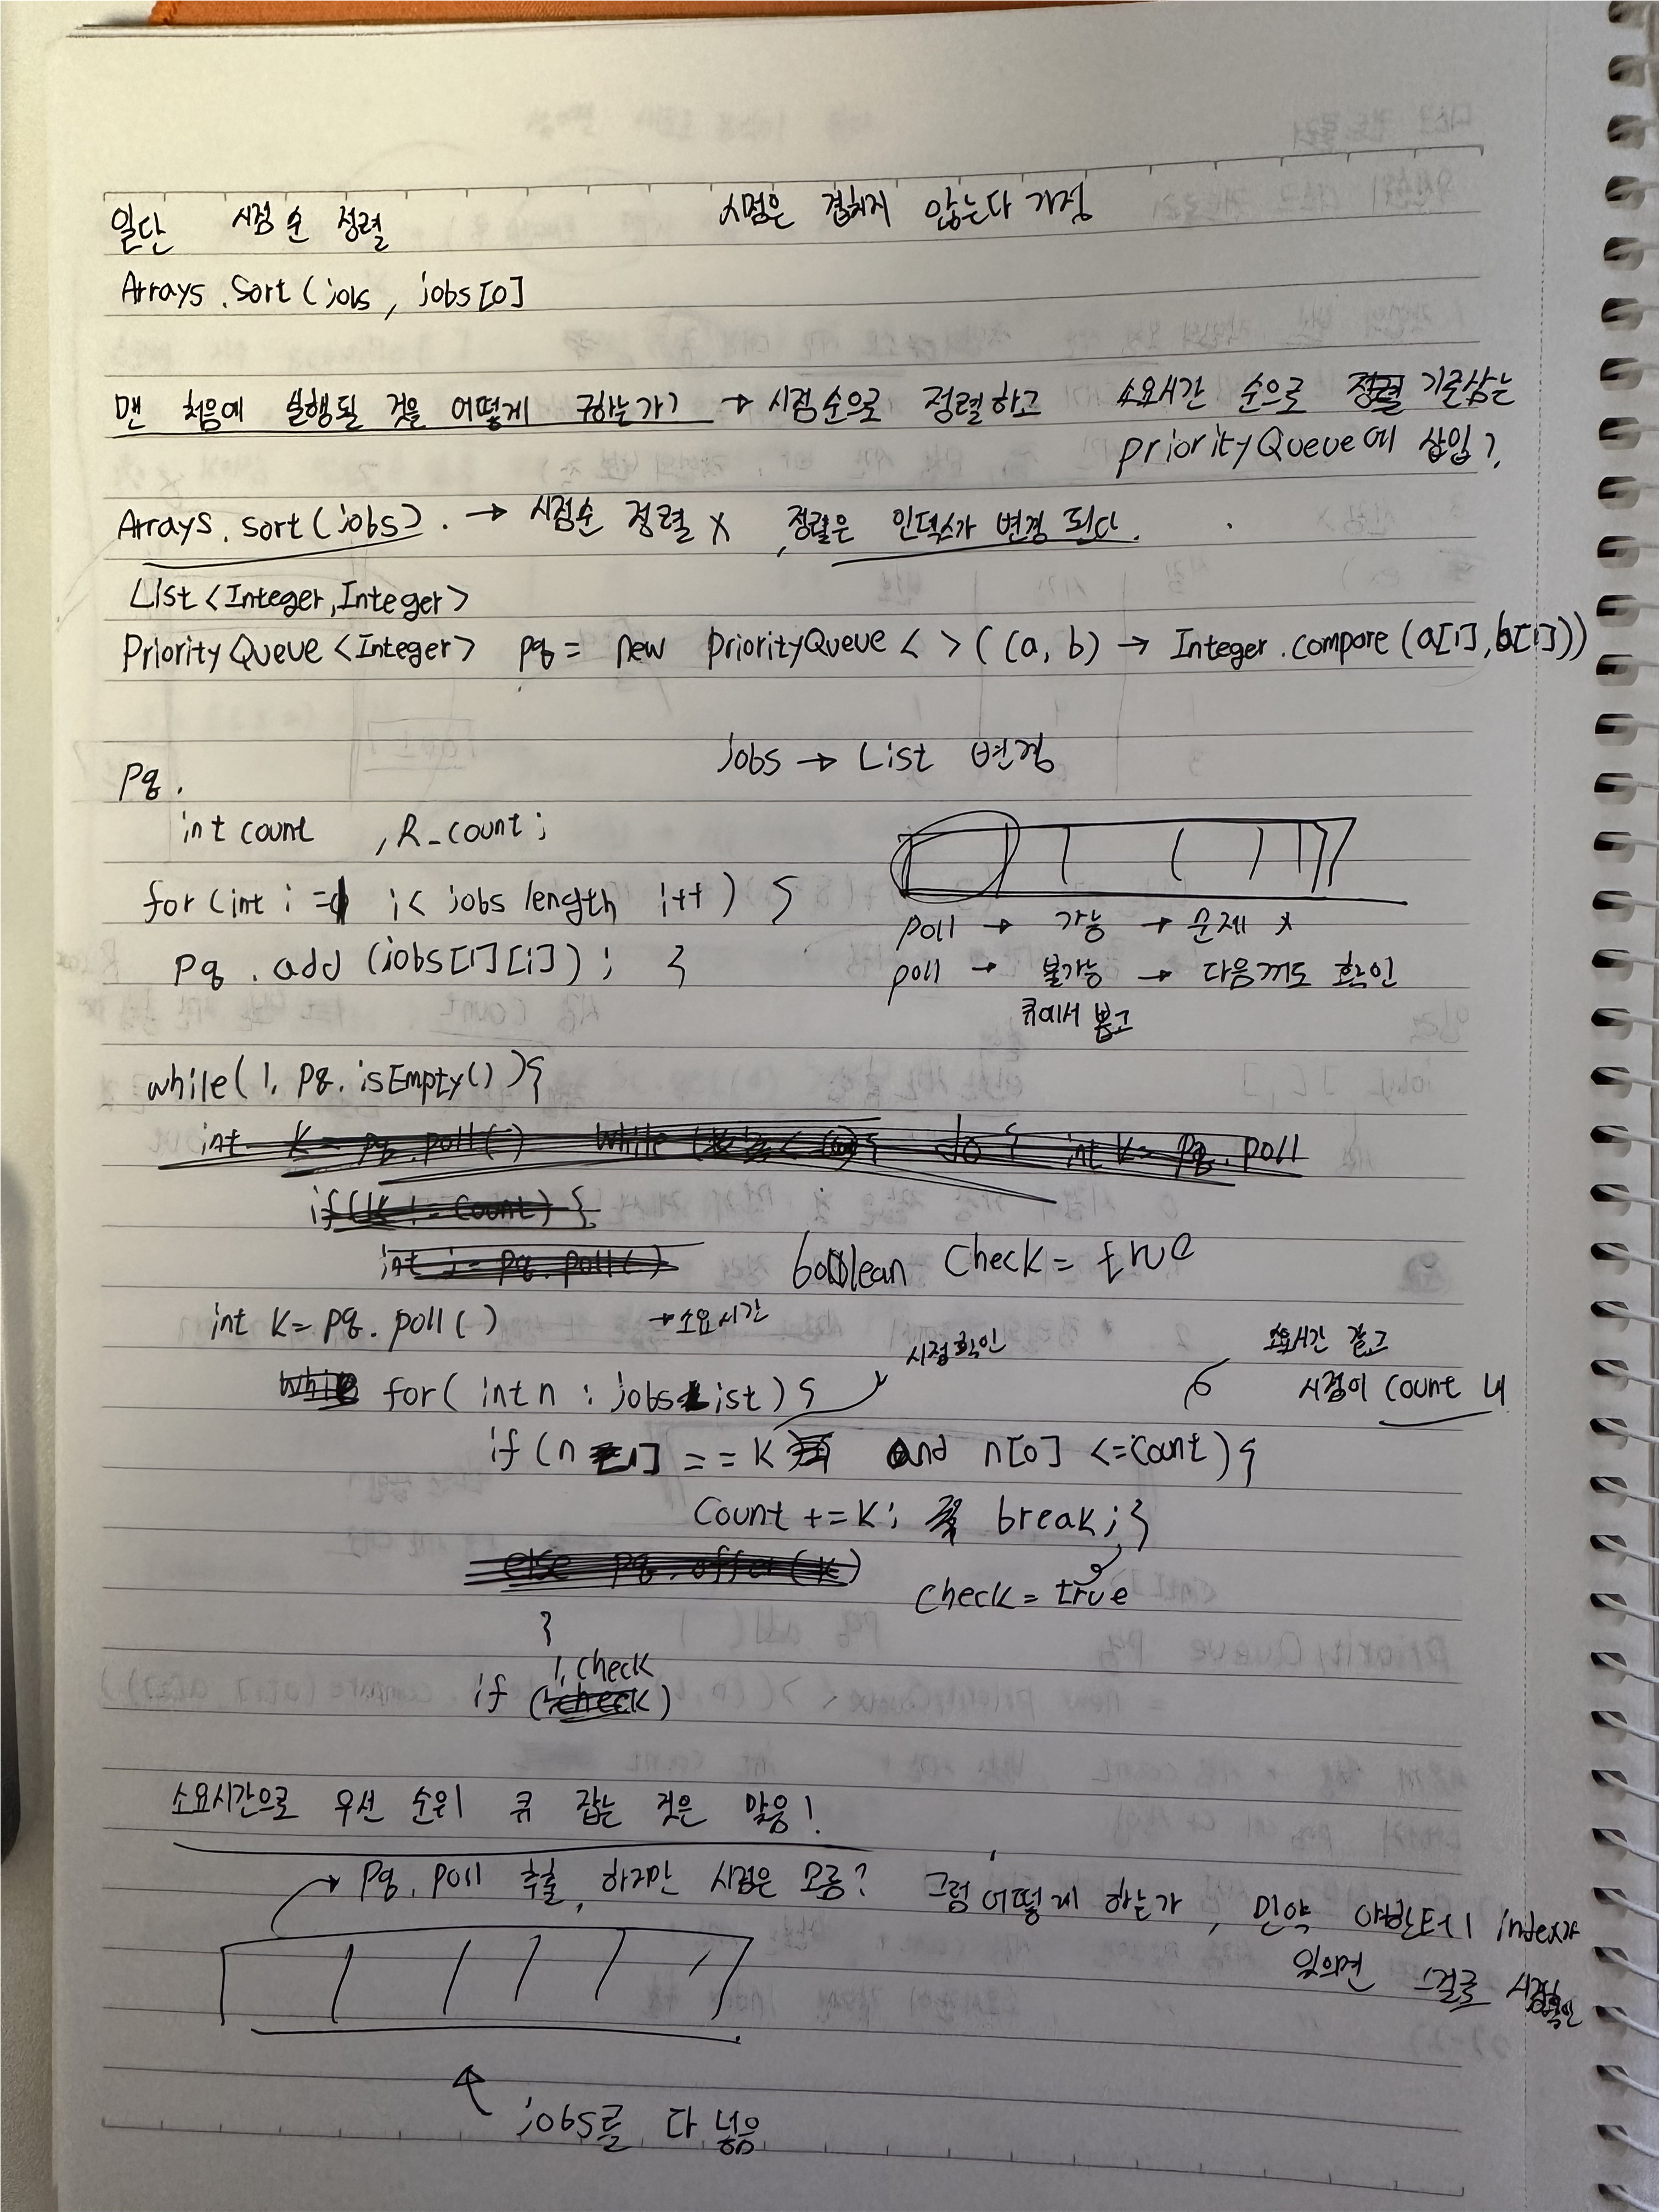 일단 시점 순 정렬 시점은 겹치지 않는다 가정
Arrays.sort(jobs, jobs[0]
맨 처음에 실행될 것을 어떻게 구하는가? → 시점순으로 정렬하고 소요시간 순으로 정렬 기준삼는
priorityQueue에 삽입?
Arrays.sort(jobs). → 시점순 정렬 X, 정렬은 인덱스가 변경 된다.
List<Integer,Integer>
PriorityQueue<Integer> pq = new priorityQueue<>((a, b) → Integer.compare(a[1], b[1]))
jobs → List 변경
pq.
int count , R_count;
for(int i = 0 i< jobs length i++) {
pq.add(jobs[i][1]); }
poll → 가능 → 문제 X
poll → 불가능 → 다음꺼도 확인
큐에서 뽑고
while(!.pq.isEmpty()){
int k= pq.poll() while do { int k= pq.poll
if(k != count) {
int j= pq.poll()
boolean check = true
int k= pq.poll() → 소요시간
시점확인
소요시간 같고
시점이 count 내
while for(int n : jobsList) {
if(n[1] == k and n[0] <=count){
Count += k; break;}
else pq.offer(k)
check = true
}
!.check
if (!check)
소요시간으로 우선 순위 큐 잡는 것은 맞음!
→ pq.poll 추출, 하지만 시점은 모름? 그럼 어떻게 하는가, 만약 야한테 index가
있으면 그걸로 시점확인
jobs를 다 넣음